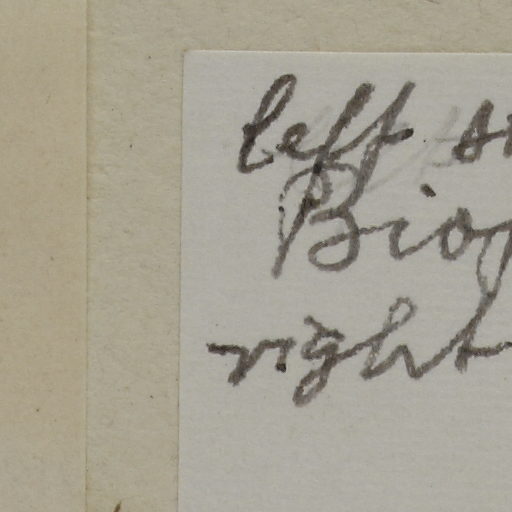 left
Biog
right